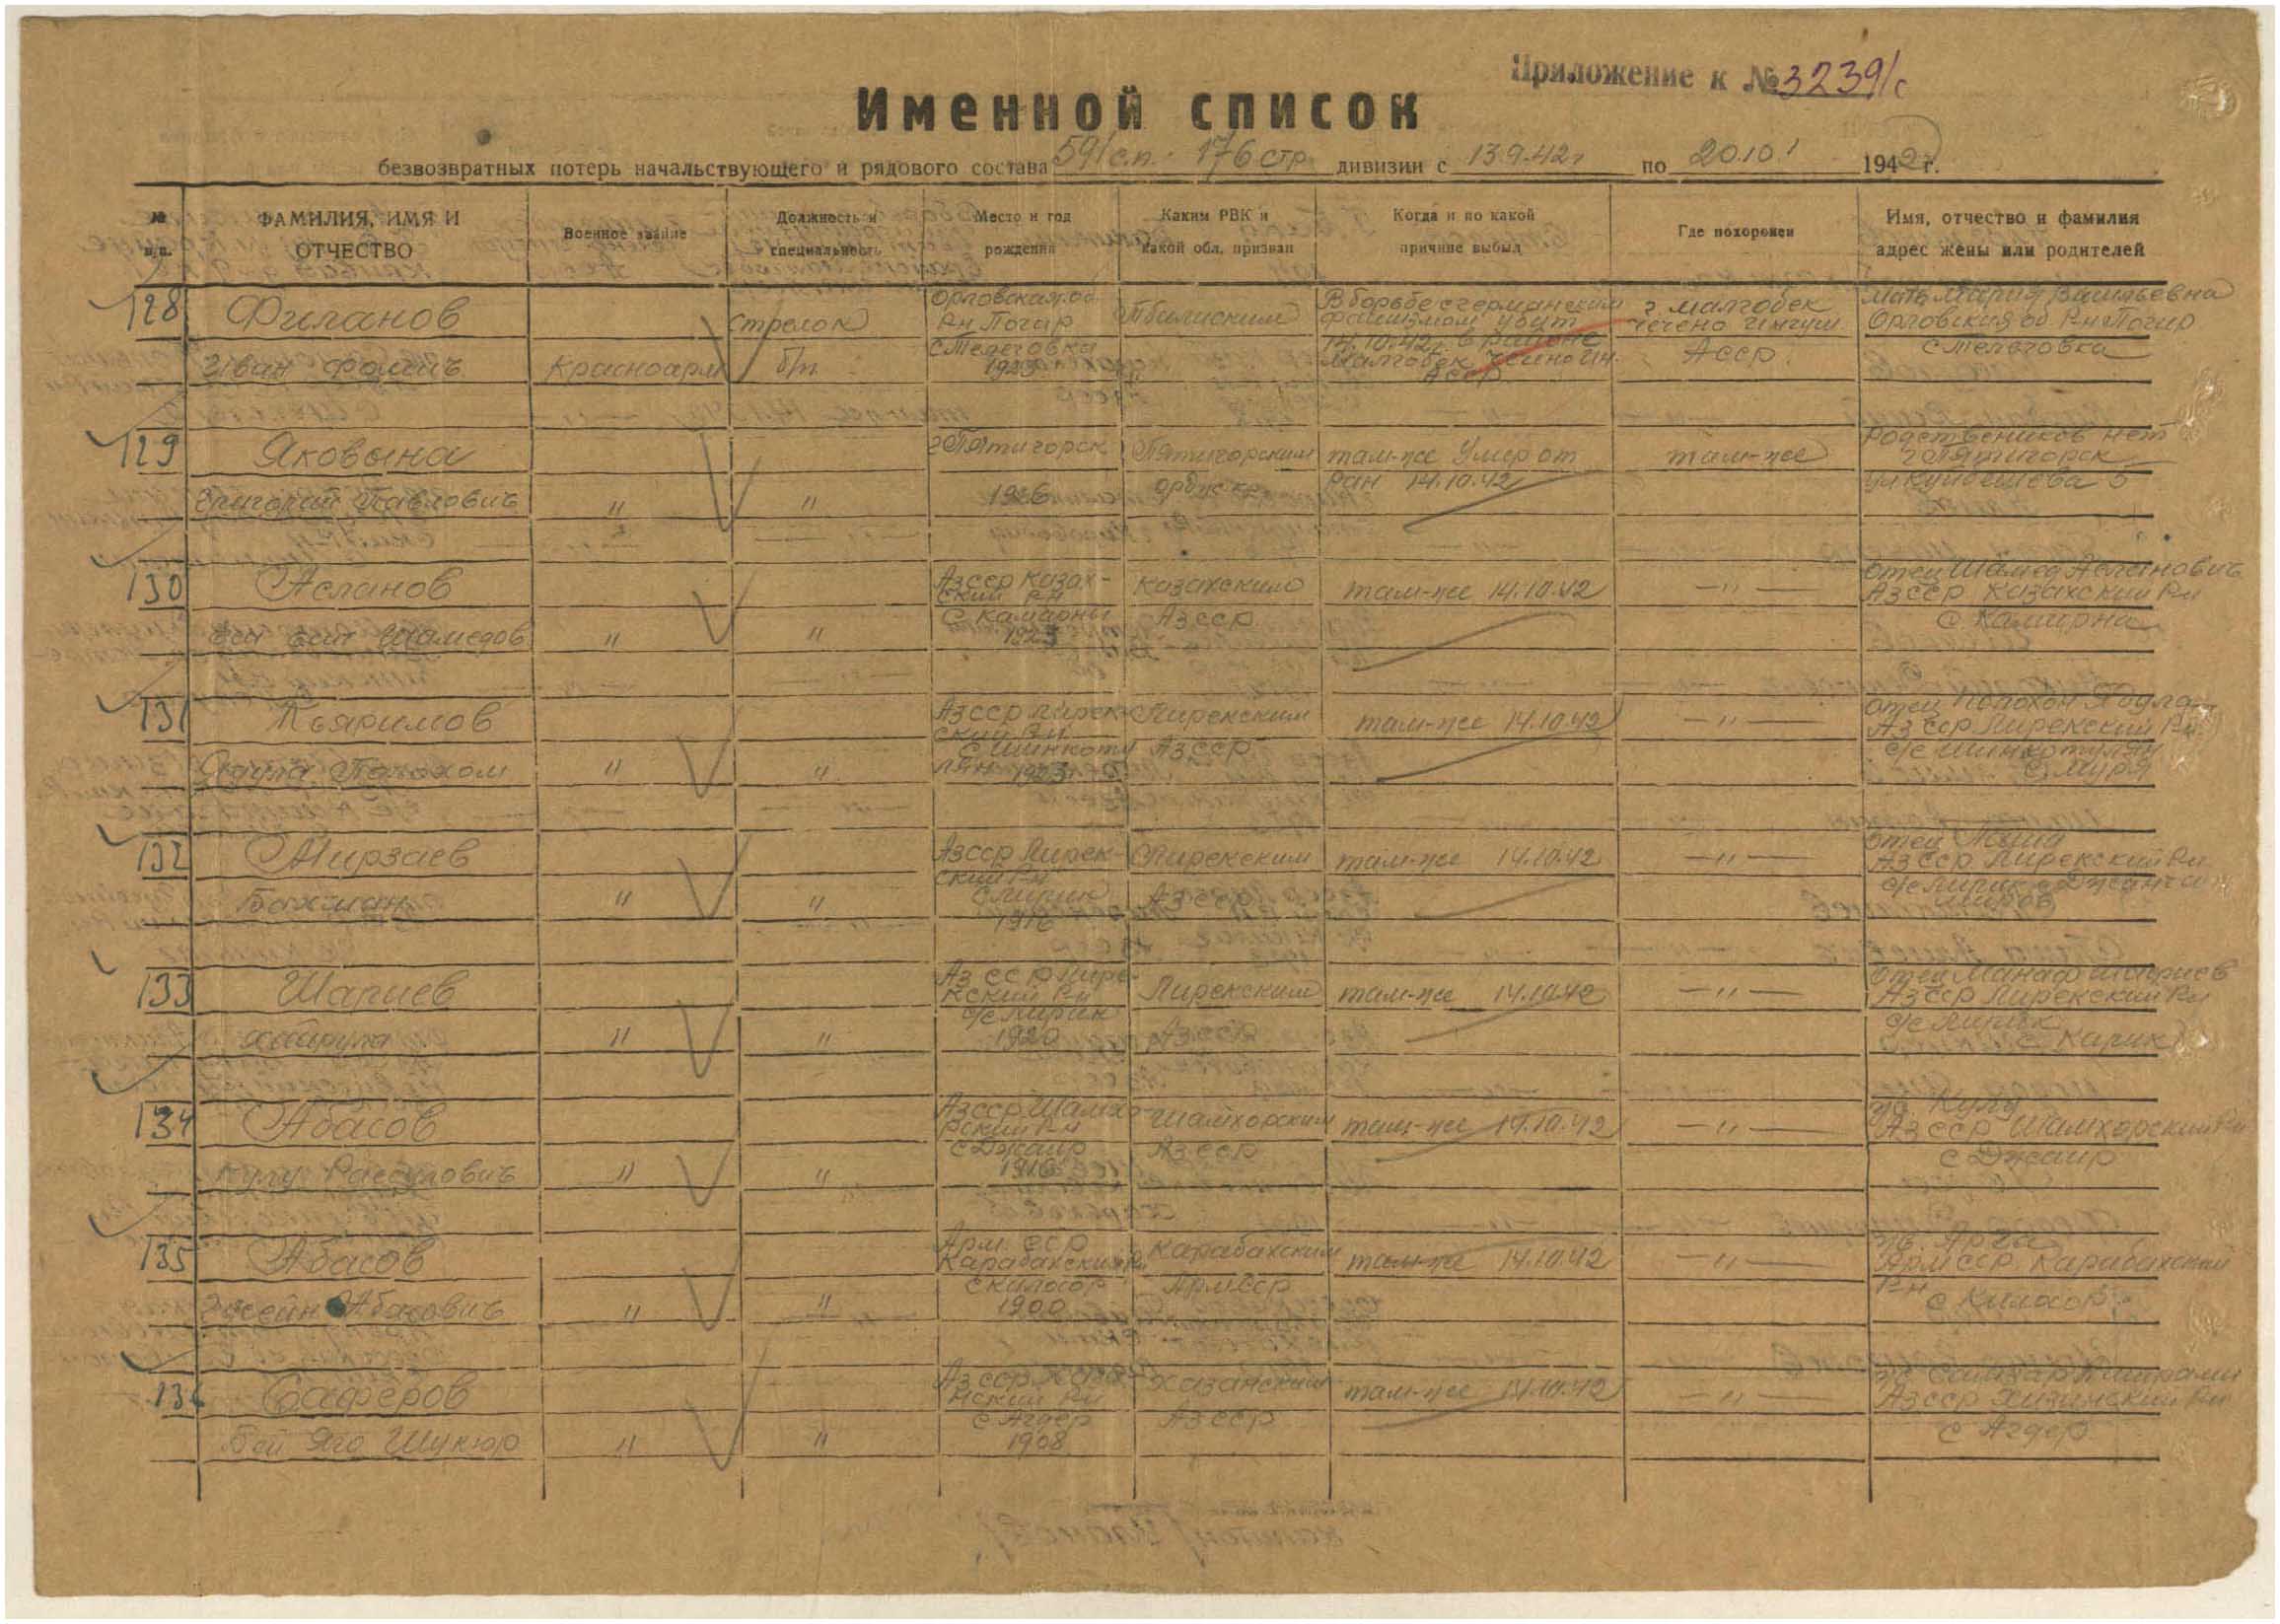 Приложение к № 3239/с
Именной список
безвозвратных потерь начальствующего и рядового состава 591 с.п. 176 стр. дивизии с 13.9.42г по 20.10 1942 г.
№ п/п. ФАМИЛИЯ, ИМЯ И ОТЧЕСТВО Военное звание Должность и специальность Место и год рождения Каким РВК и какой обл. призван Когда и по какой причине выбыл Где похоронен Имя, отчество и фамилия адрес жены или родителей
128 Филанов
Иван Фомичь Красноарм Стрелок
б/п
Орловская об
Р-н Погар
с Телеговка
1923
Тбилиским
В борьбе с германским
фашизмом убит
14.10.42 в районе
Малгобек Чечено Ин.
АССР
г Малгобек
Чечено Ингуш
АССР
Мать Мария Васильевна
Орловская об Р-н Погар
с Телеговка
129 Яковына
Григорий Павлович " "
г Пятигорск
1926
Пятигорским
там-же Умер от
ран 14.10.42
там-же
Родствеников нет
г Пятигорск
ул Куйбешева 5
130 Асланов
Шамедов " "
Азсср Казах-
ский Р-н
с Камарны
1923
Казахским
Азсср
там-же 14.10.42
—"—
Отец Шамед Асланович
Азсср Казахский Р-н
с Камирна
131 Кьяримов
Ядула Полохом " "
Азсср Лирек-
ский Р-н
1923
Лирекским
Азсср
там-же 14.10.42
—"—
Отец Полохом Ядула
Азсср Лирекский Р-н
132 Мирзаев
Бахман " "
Азсср Лирек-
ский Р-н
с Лирик
1916
Лирекским
Азсср
там-же 14.10.42
—"—
Отец
Азсср Лирекский Р-н
с/с Лирик с Джанга
миров
133 Шариев
" "
Азсср Лире-
кский Р-н
с/с Лирик
1920
Лирекским
Азсср
там-же 14.10.42
—"—
Отец Манаф Шариев
Азсср Лирекский Р-н
с/с Лирик
с Карик
134 Абасов
Кулу Рассулович " "
Азсср Шамхо-
рский Р-н
с Джаир
1916
Шамхорским
Азсср
там-же 14.10.42
—"—
Кулу
Азсср Шамхорский Р-н
с Джаир
135 Абасов
Эвсейн Абасович " "
Арм. сср
Карабахский Р-н
с Килосор
1900
Карабахским
Армсср
там-же 14.10.42
—"—
Арм сср Карабахский
Р-н
с Килосор
136 Саферов
Бей Яго Шукюр " "
Азсср
с Агдер
1908
Азсср
там-же 14.10.42
—"—
Азсср Хизинский Р-н
с Агдер